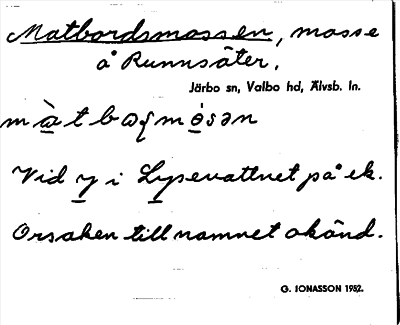 Matbordsmossen, mosse
å Runnsäter.
Järbo sn, Valbo hd, Älvsb. ln.
Vid y i Lysevattnet på ek.
Orsaken till namnet okänd.
G. JONASSON 1982.